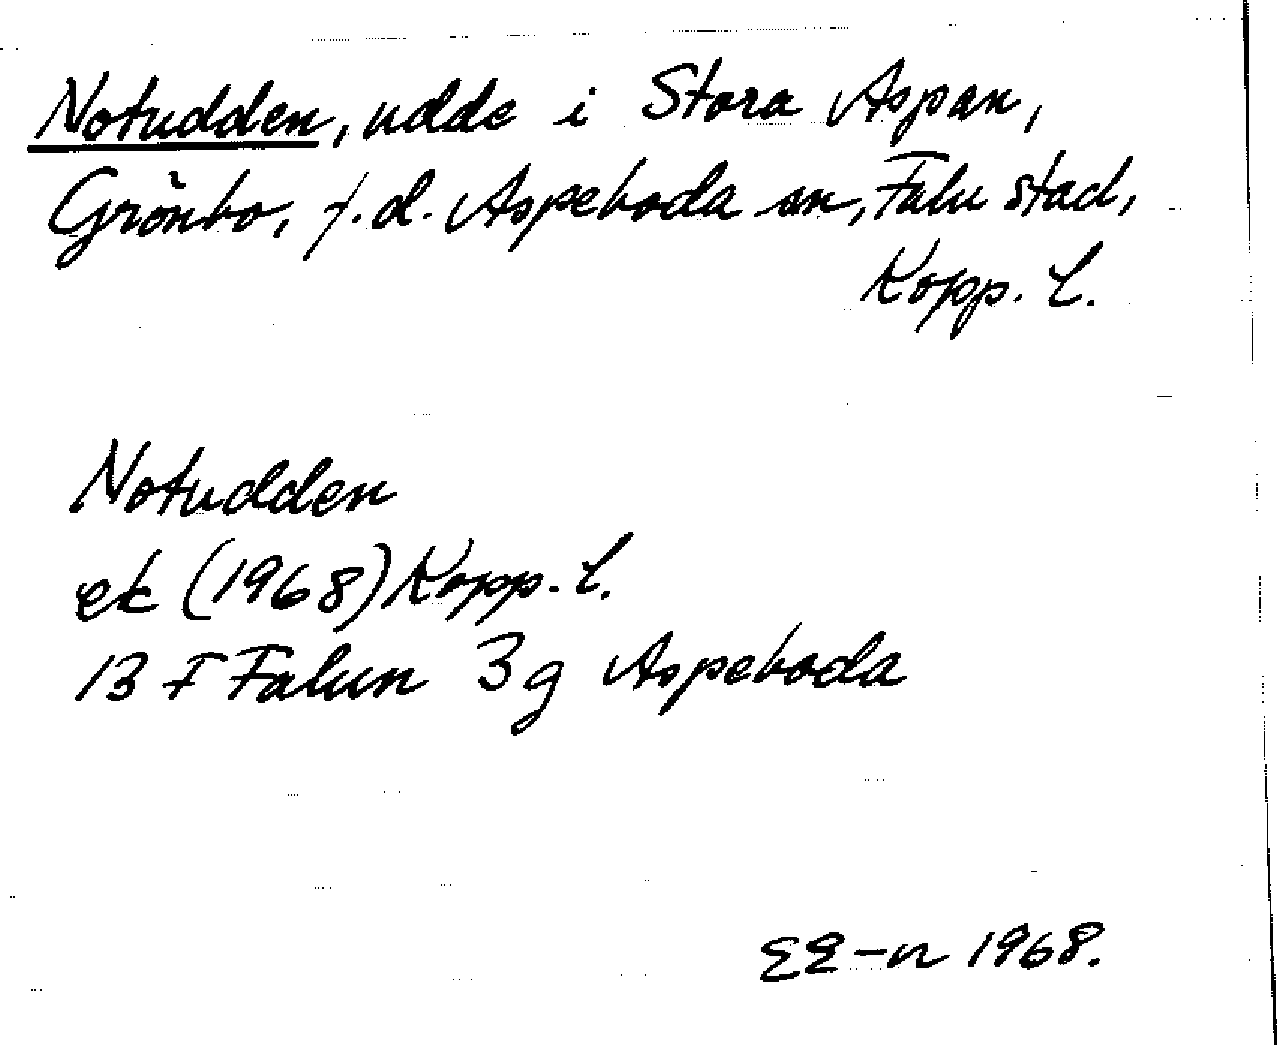 Notudden, udde i Stora Aspan,
Grönbo, f.d. Aspeboda sn, Falu stad,
Kopp. L.
Notudden
ek (1968) Kopp. L.
13 F Falun 3g Aspeboda
EE-n 1968.